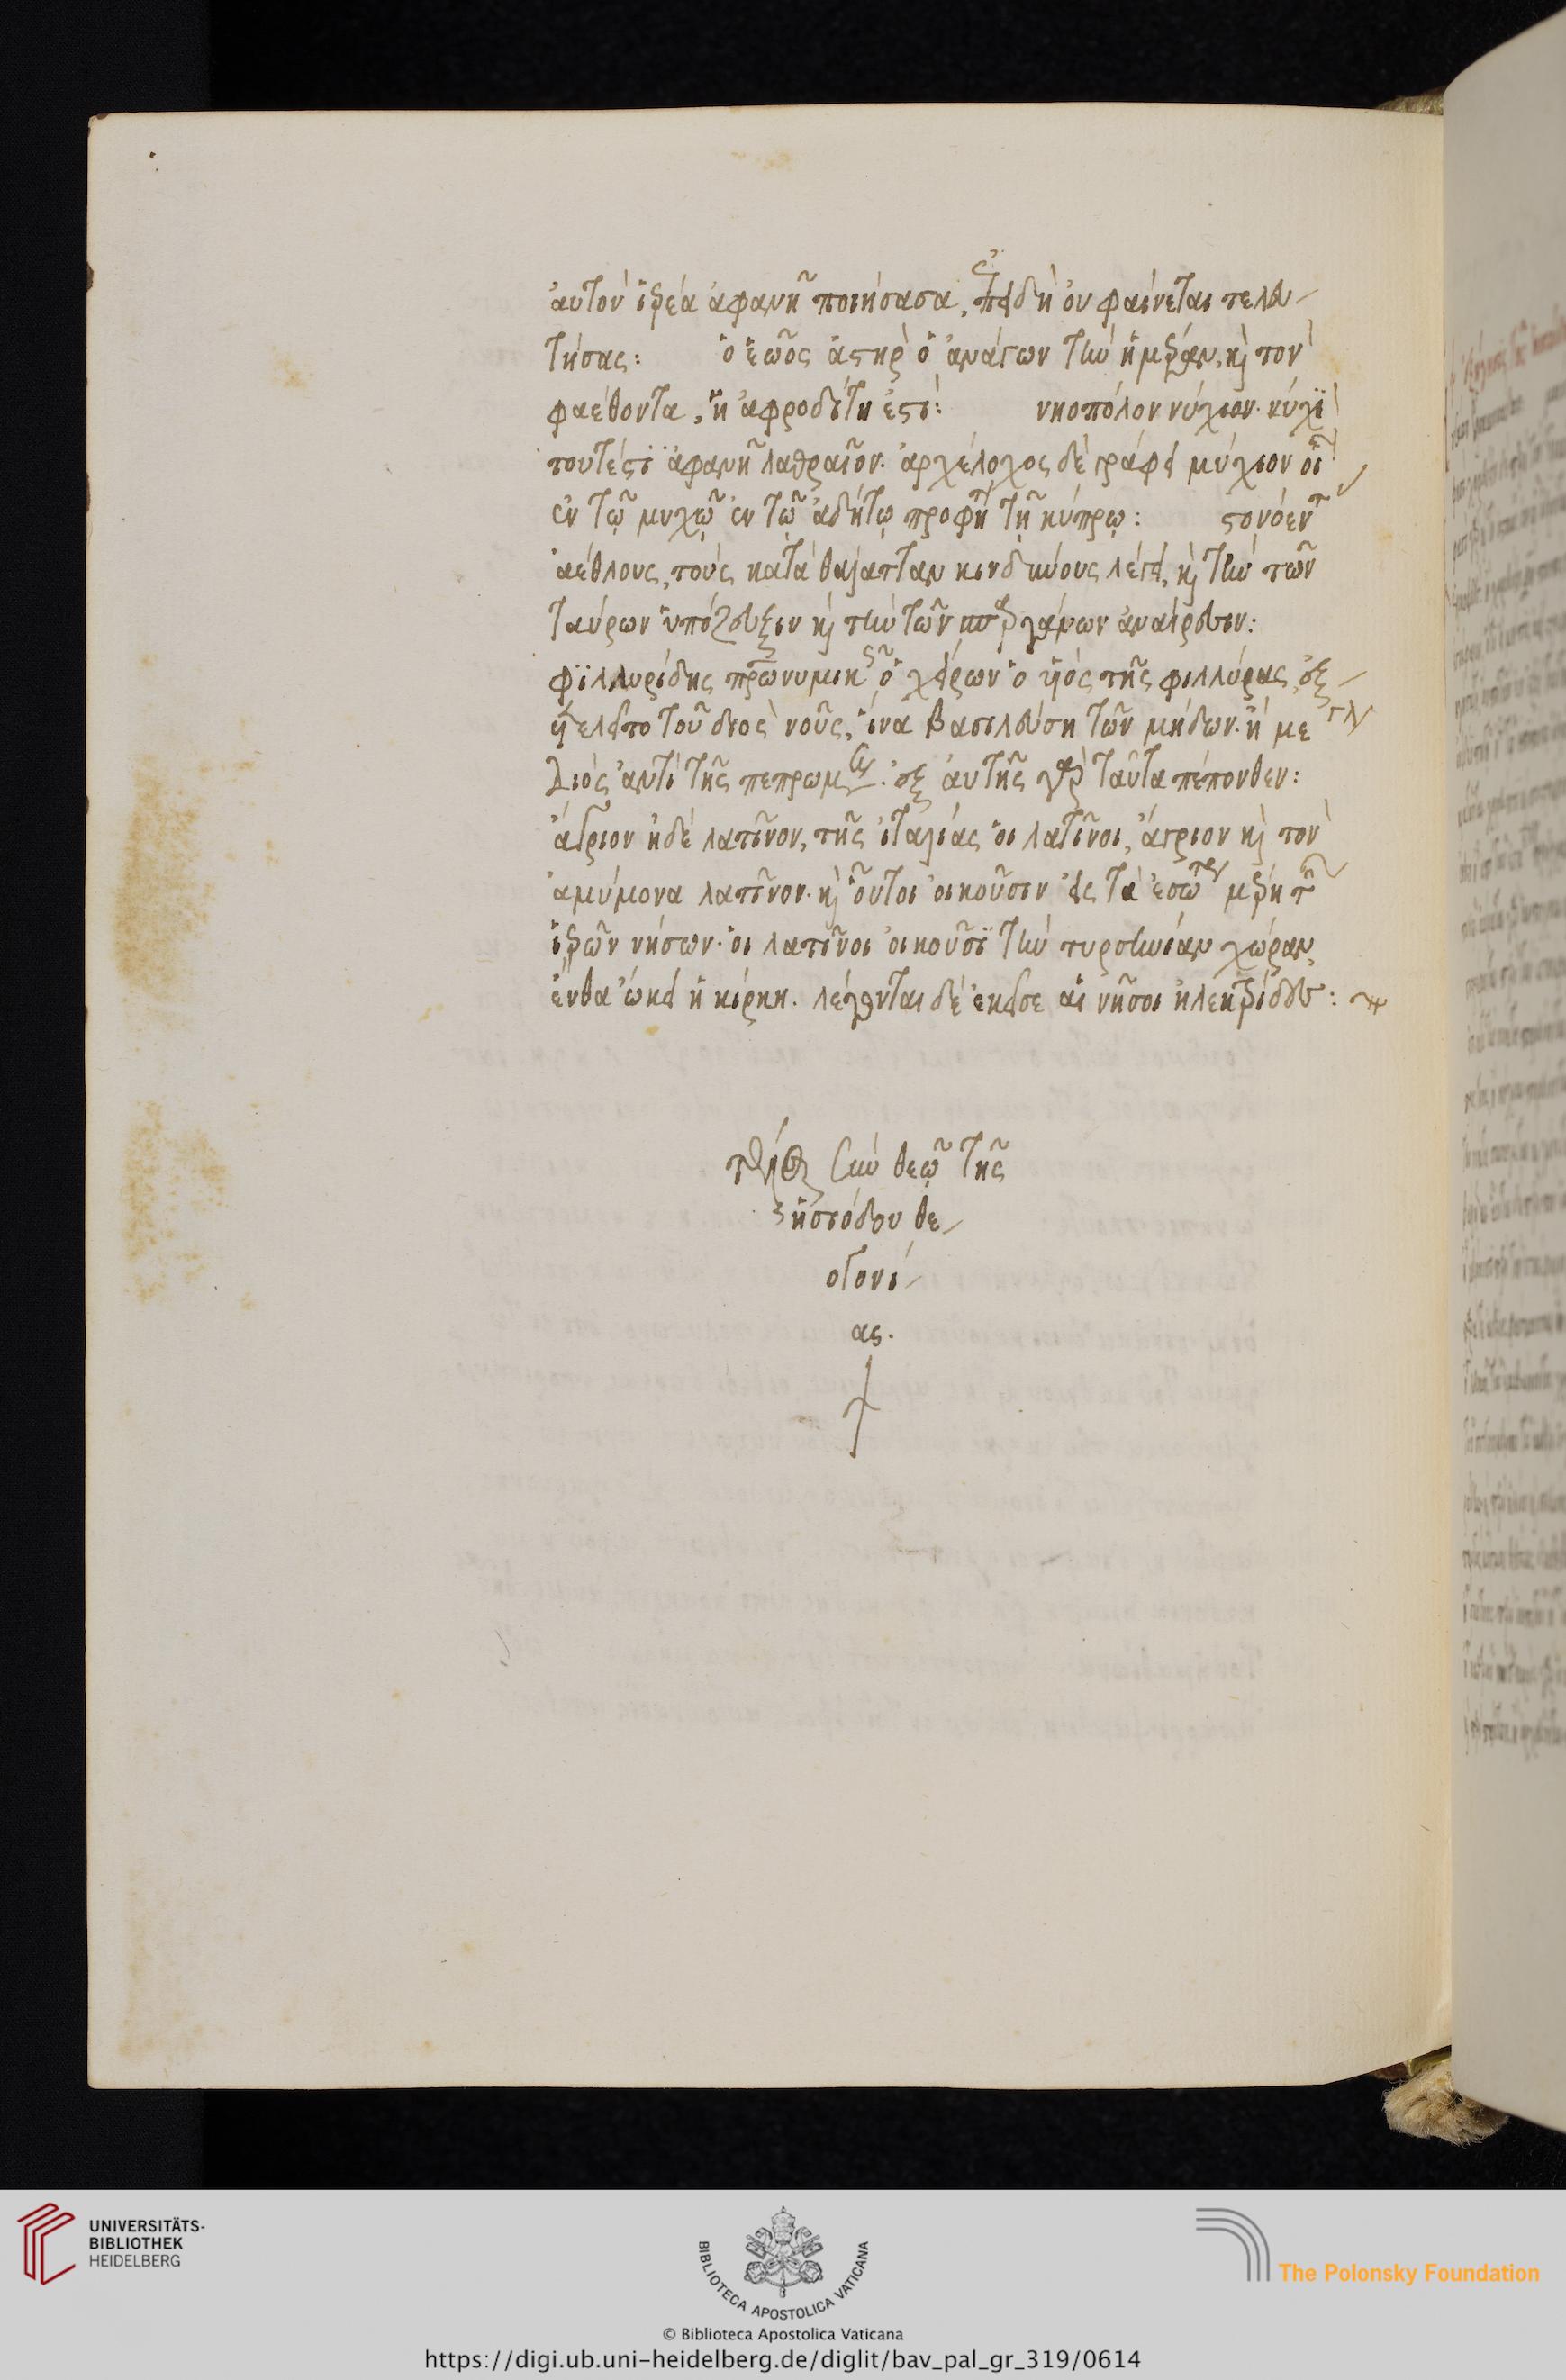 αὐτὸν ἱερέα ἀφανῆ ποιήσασα, ἐπειδὴ οὐ φαίνεται τελευ-
τήσας: ὁ ἑῶος ἀστὴρ ὁ ἀνάγων τὴν ἡμέραν, καὶ τὸν
φαέθοντα, ἡ ἀφροδίτη ἐστί: νηοπόλον νύχιον. νύχι
τουτέστι ἀφανῆ λαθραῖον. ἀρχέλοχος δὲ γράφει μύχιον
ἐν τῷ μυχῷ ἐν τῷ ἀδήτῳ προφήτη τῇ κύπρῳ: στονόεντ
ἀέθλους, τοὺς κατὰ θάλατταν κινδύνους λέγει, καὶ τὴν τῶν
ταύρων ὑπόζευξιν καὶ τὴν τῶν ἀναίρεσιν:
φιλλυρίδης ὁ χείρων ὁ υἱὸς τῆς φιλλύρας, ἐξ-
ετελεῖτο τοῦ διὸς νοῦς, ἵνα βασιλεύση τῶν μήδων. ἢ με
διὸς ἀντὶ τῆς πεπρωμένης. ἐξ αὐτῆς γὰρ ταῦτα πέπονθεν:
ἄγριον ἠδὲ λατῖνον, τῆς ἰταλίας οἱ λατῖνοι, ἄγριον καὶ τὸν
ἀμύμονα λατῖνον. καὶ οὗτοι οἰκοῦσιν εἰς τὰ ἐσώτερα μέρη τῶν
ἱερῶν νήσων. οἱ λατῖνοι οἰκοῦσι τὴν τυρσηνίαν χώραν,
ἔνθα ᾤκει ἡ κίρκη. λέγονται δὲ ἐκεῖσε αἱ νῆσοι ἠλεκτρίδες:
τέλος σὺν θεῷ τῆς
ἡσιόδου θε-
ογονί-
ας.
UNIVERSITÄTS-
BIBLIOTHEK
HEIDELBERG
BIBLIOTECA APOSTOLICA VATICANA
The Polonsky Foundation
© Biblioteca Apostolica Vaticana
https://digi.ub.uni-heidelberg.de/diglit/bav_pal_gr_319/0614